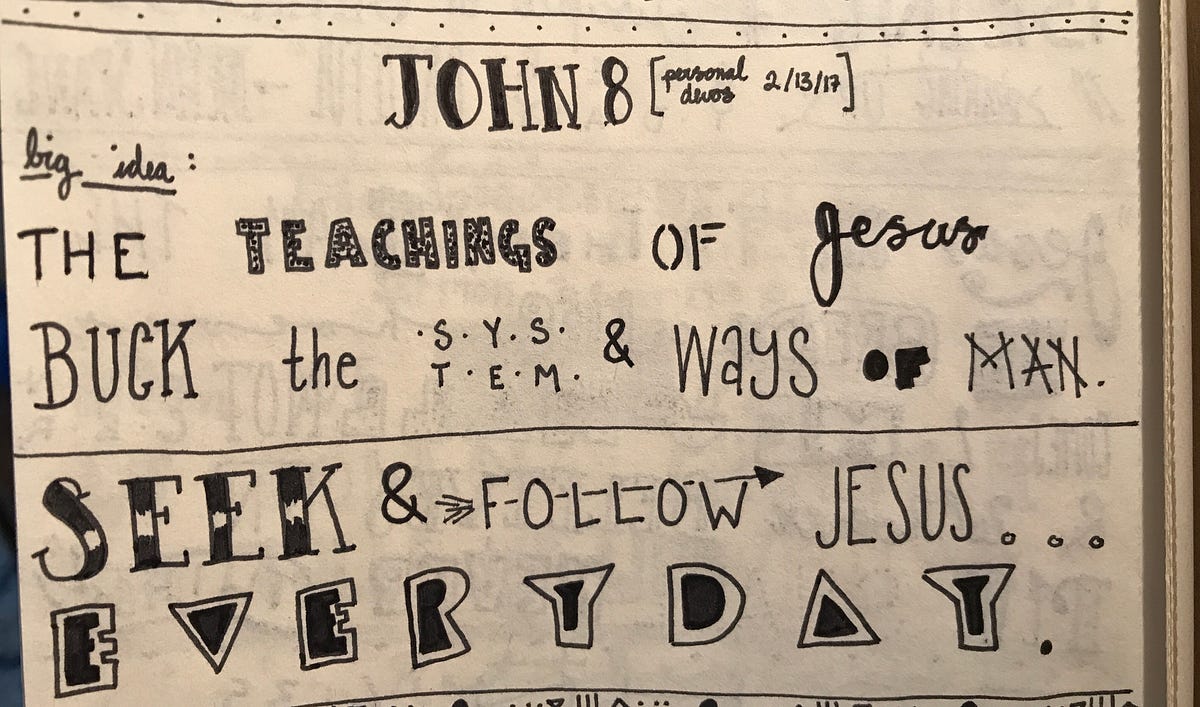 JOHN 8 [personal devos 2/13/17]
big idea:
THE TEACHINGS OF Jesus
BUCK the ·S·Y·S·T·E·M· & Ways OF MAN.
SEEK & FOLLOW JESUS...
EVERYDAY.